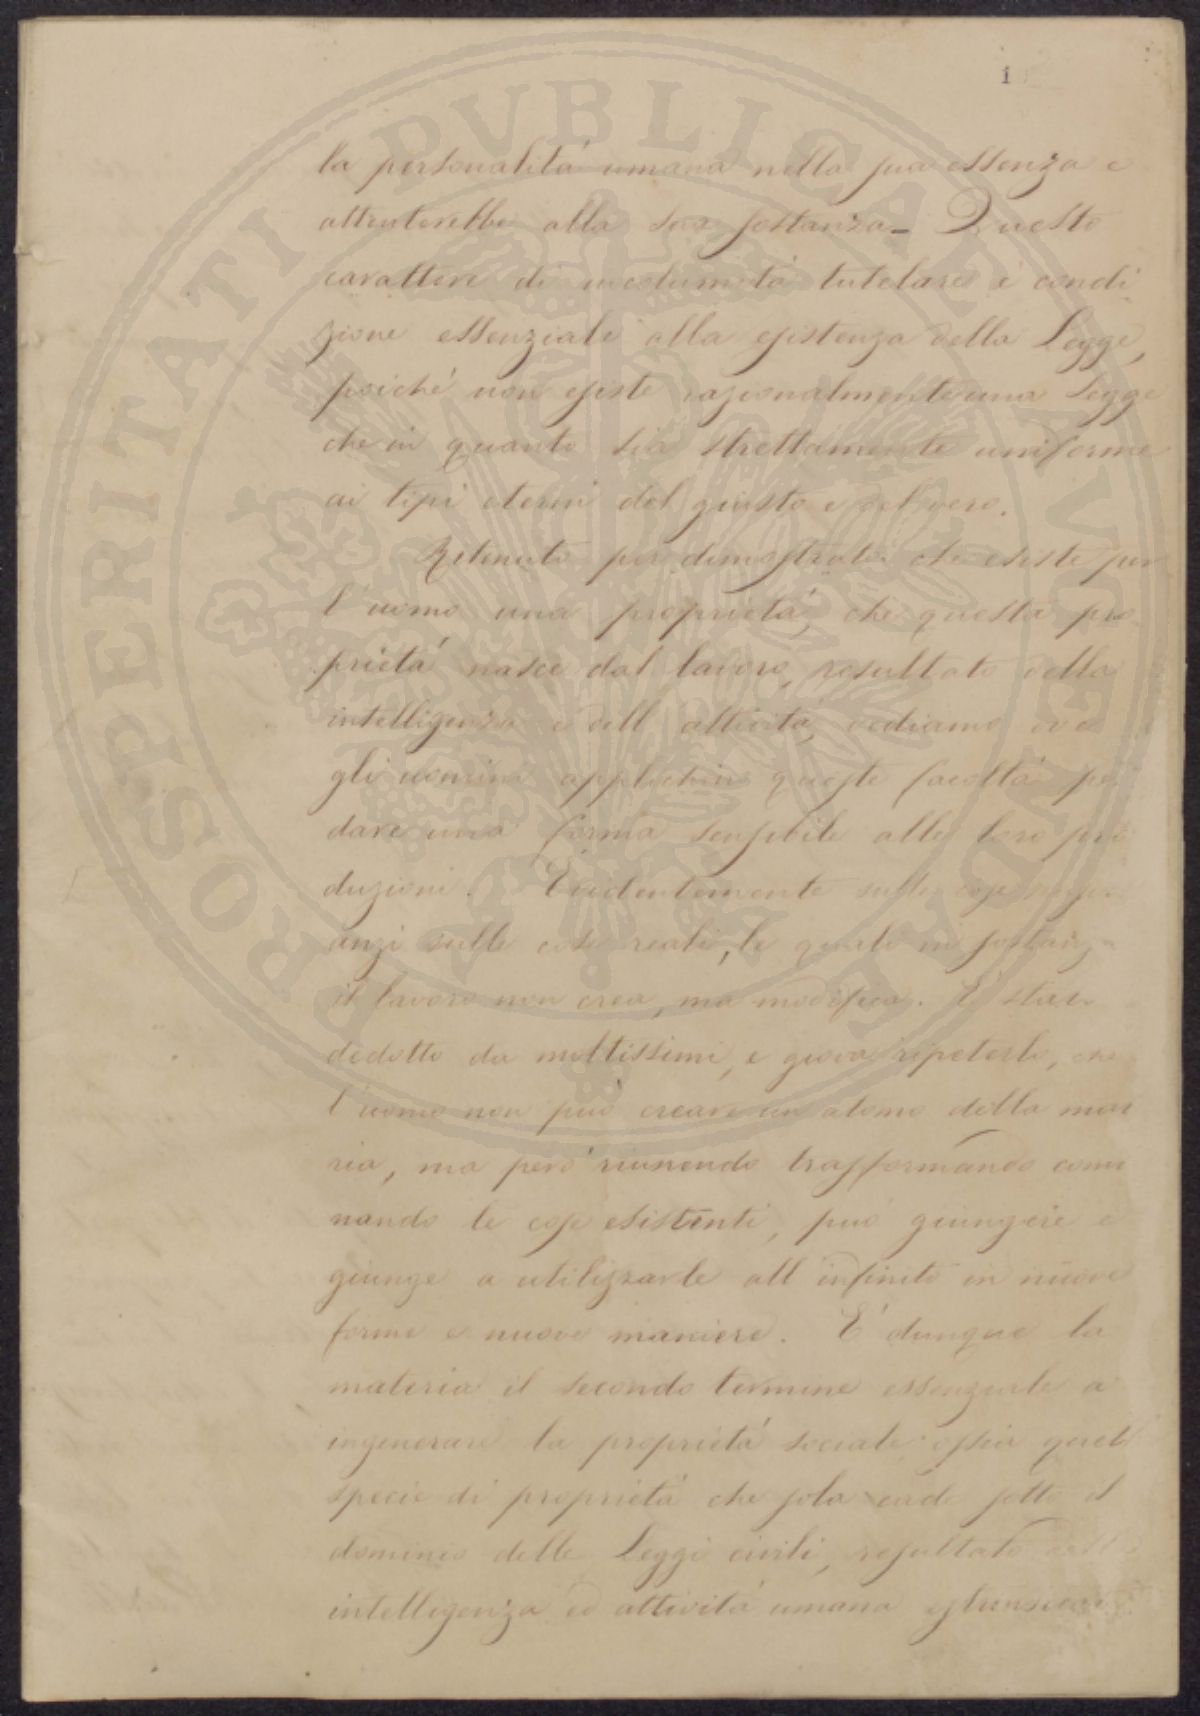 1
PROSPERITATI PVBLICAE AVGENDAE
la personalitá umana nella sua essenza e
attenterebbe alla sua sostanza_ Questo
carattere di incolumitá tutelare é condi
zione essenziale alla esistenza della Legge,
poiché non esiste razionalmente una Legge
che in quanto sia strettamente uniforme
ai tipi eterni del giusto e del vero.
Ritenuto per dimostrato che esiste per
l'uomo una proprietá, che questa pro
prietá nasce dal lavoro, resultato della
intelligenza e dell attivitá, vediamo ove
gli uomini applichino queste facoltá per
dare una forma sensibile alle loro pro
duzioni. Evidentemente sulle cose
anzi sulle cose reali, le quali in sostanza
il lavoro non crea, ma modifica. É stato
dedotto da moltissimi, e giova ripeterlo, che
l'uomo non puó creare un atomo della mate
ria, ma peró riunendo trasformando combi
nando le cose esistenti, puó giungere e
giunge a utilizzarle all infinito in nuove
forme e nuove maniere. É dunque la
materia il secondo termine essenziale a
ingenerare la proprietá sociale ossia quel
specie di proprietá che sola cade sotto il
dominio delle Leggi civili, resultato della
intelligenza ed attivitá umana